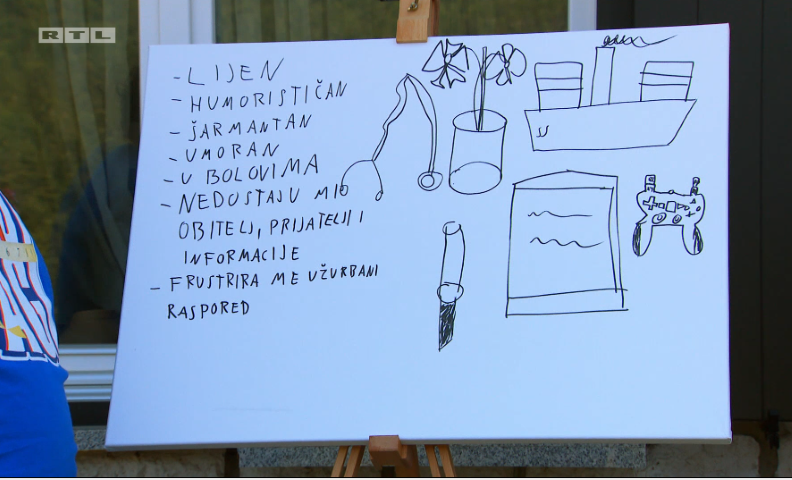 RTL
- LIJEN
- HUMORISTIČAN
- ŠARMANTAN
- UMORAN
- U BOLOVIMA
- NEDOSTAJU MI
OBITELJ, PRIJATELJI I
INFORMACIJE
- FRUSTRIRA ME UŽURBANI
RASPORED